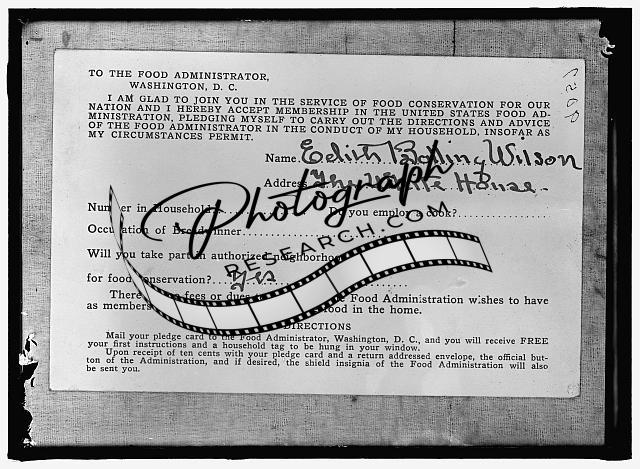 TO THE FOOD ADMINISTRATOR,
WASHINGTON, D. C.
I AM GLAD TO JOIN YOU IN THE SERVICE OF FOOD CONSERVATION FOR OUR
NATION AND I HEREBY ACCEPT MEMBERSHIP IN THE UNITED STATES FOOD AD-
MINISTRATION, PLEDGING MYSELF TO CARRY OUT THE DIRECTIONS AND ADVICE
OF THE FOOD ADMINISTRATOR IN THE CONDUCT OF MY HOUSEHOLD, INSOFAR AS
MY CIRCUMSTANCES PERMIT.
Name Edith Bolling Wilson
Address The White House.
Number in Household Do you employ a cook?
Occupation of Breadwinner
Will you take part in authorized neighborhood
for food conservation? Yes
There fees or dues Food Administration wishes to have
as members food in the home.
DIRECTIONS
Mail your pledge card to the Food Administrator, Washington, D. C., and you will receive FREE
your first instructions and a household tag to be hung in your window.
Upon receipt of ten cents with your pledge card and a return addressed envelope, the official but-
ton of the Administration, and if desired, the shield insignia of the Food Administration will also
be sent you.
Photograph
RESEARCH.COM